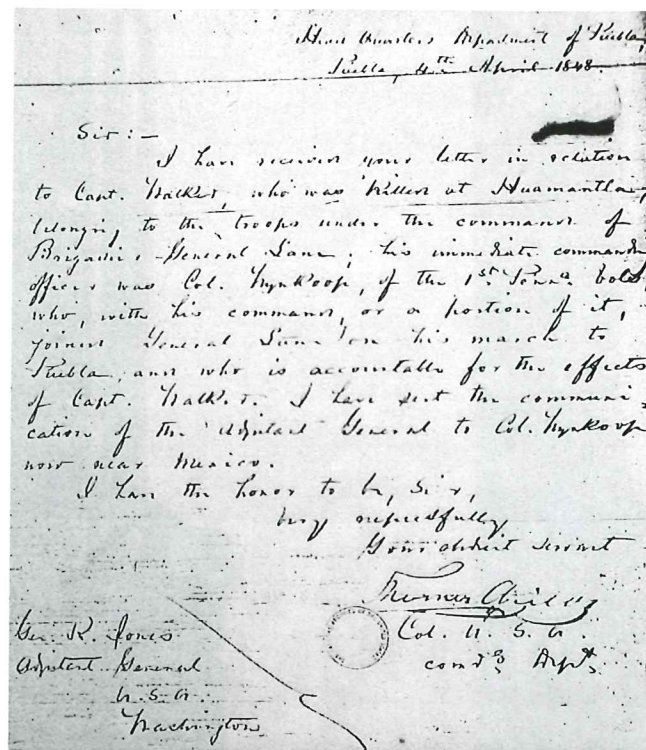 Head Quarters Department of Puebla,
Puebla, 4th April 1848.
Sir:—
I have received your letter in relation
to Capt. Walker, who was killed at Huamantla,
belongs, to the troops under the command of
Brigadier General Lane; his immediate commands
officer was Col. Wynkoop, of the 1st Penna Vols,
who, with his command, or a portion of it,
joined General Lane on his march to
Puebla, and who is accountable for the effects
of Capt. Walker. I have sent the communi-
cation of the Adjutant General to Col. Wynkoop
now near Mexico.
I have the honor to be, Sir,
Very respectfully
Your obedient servant
Thomas Childs
Col. U. S. A.
comdg Dept.
Gen. R. Jones
Adjutant General
U. S. A
Washington